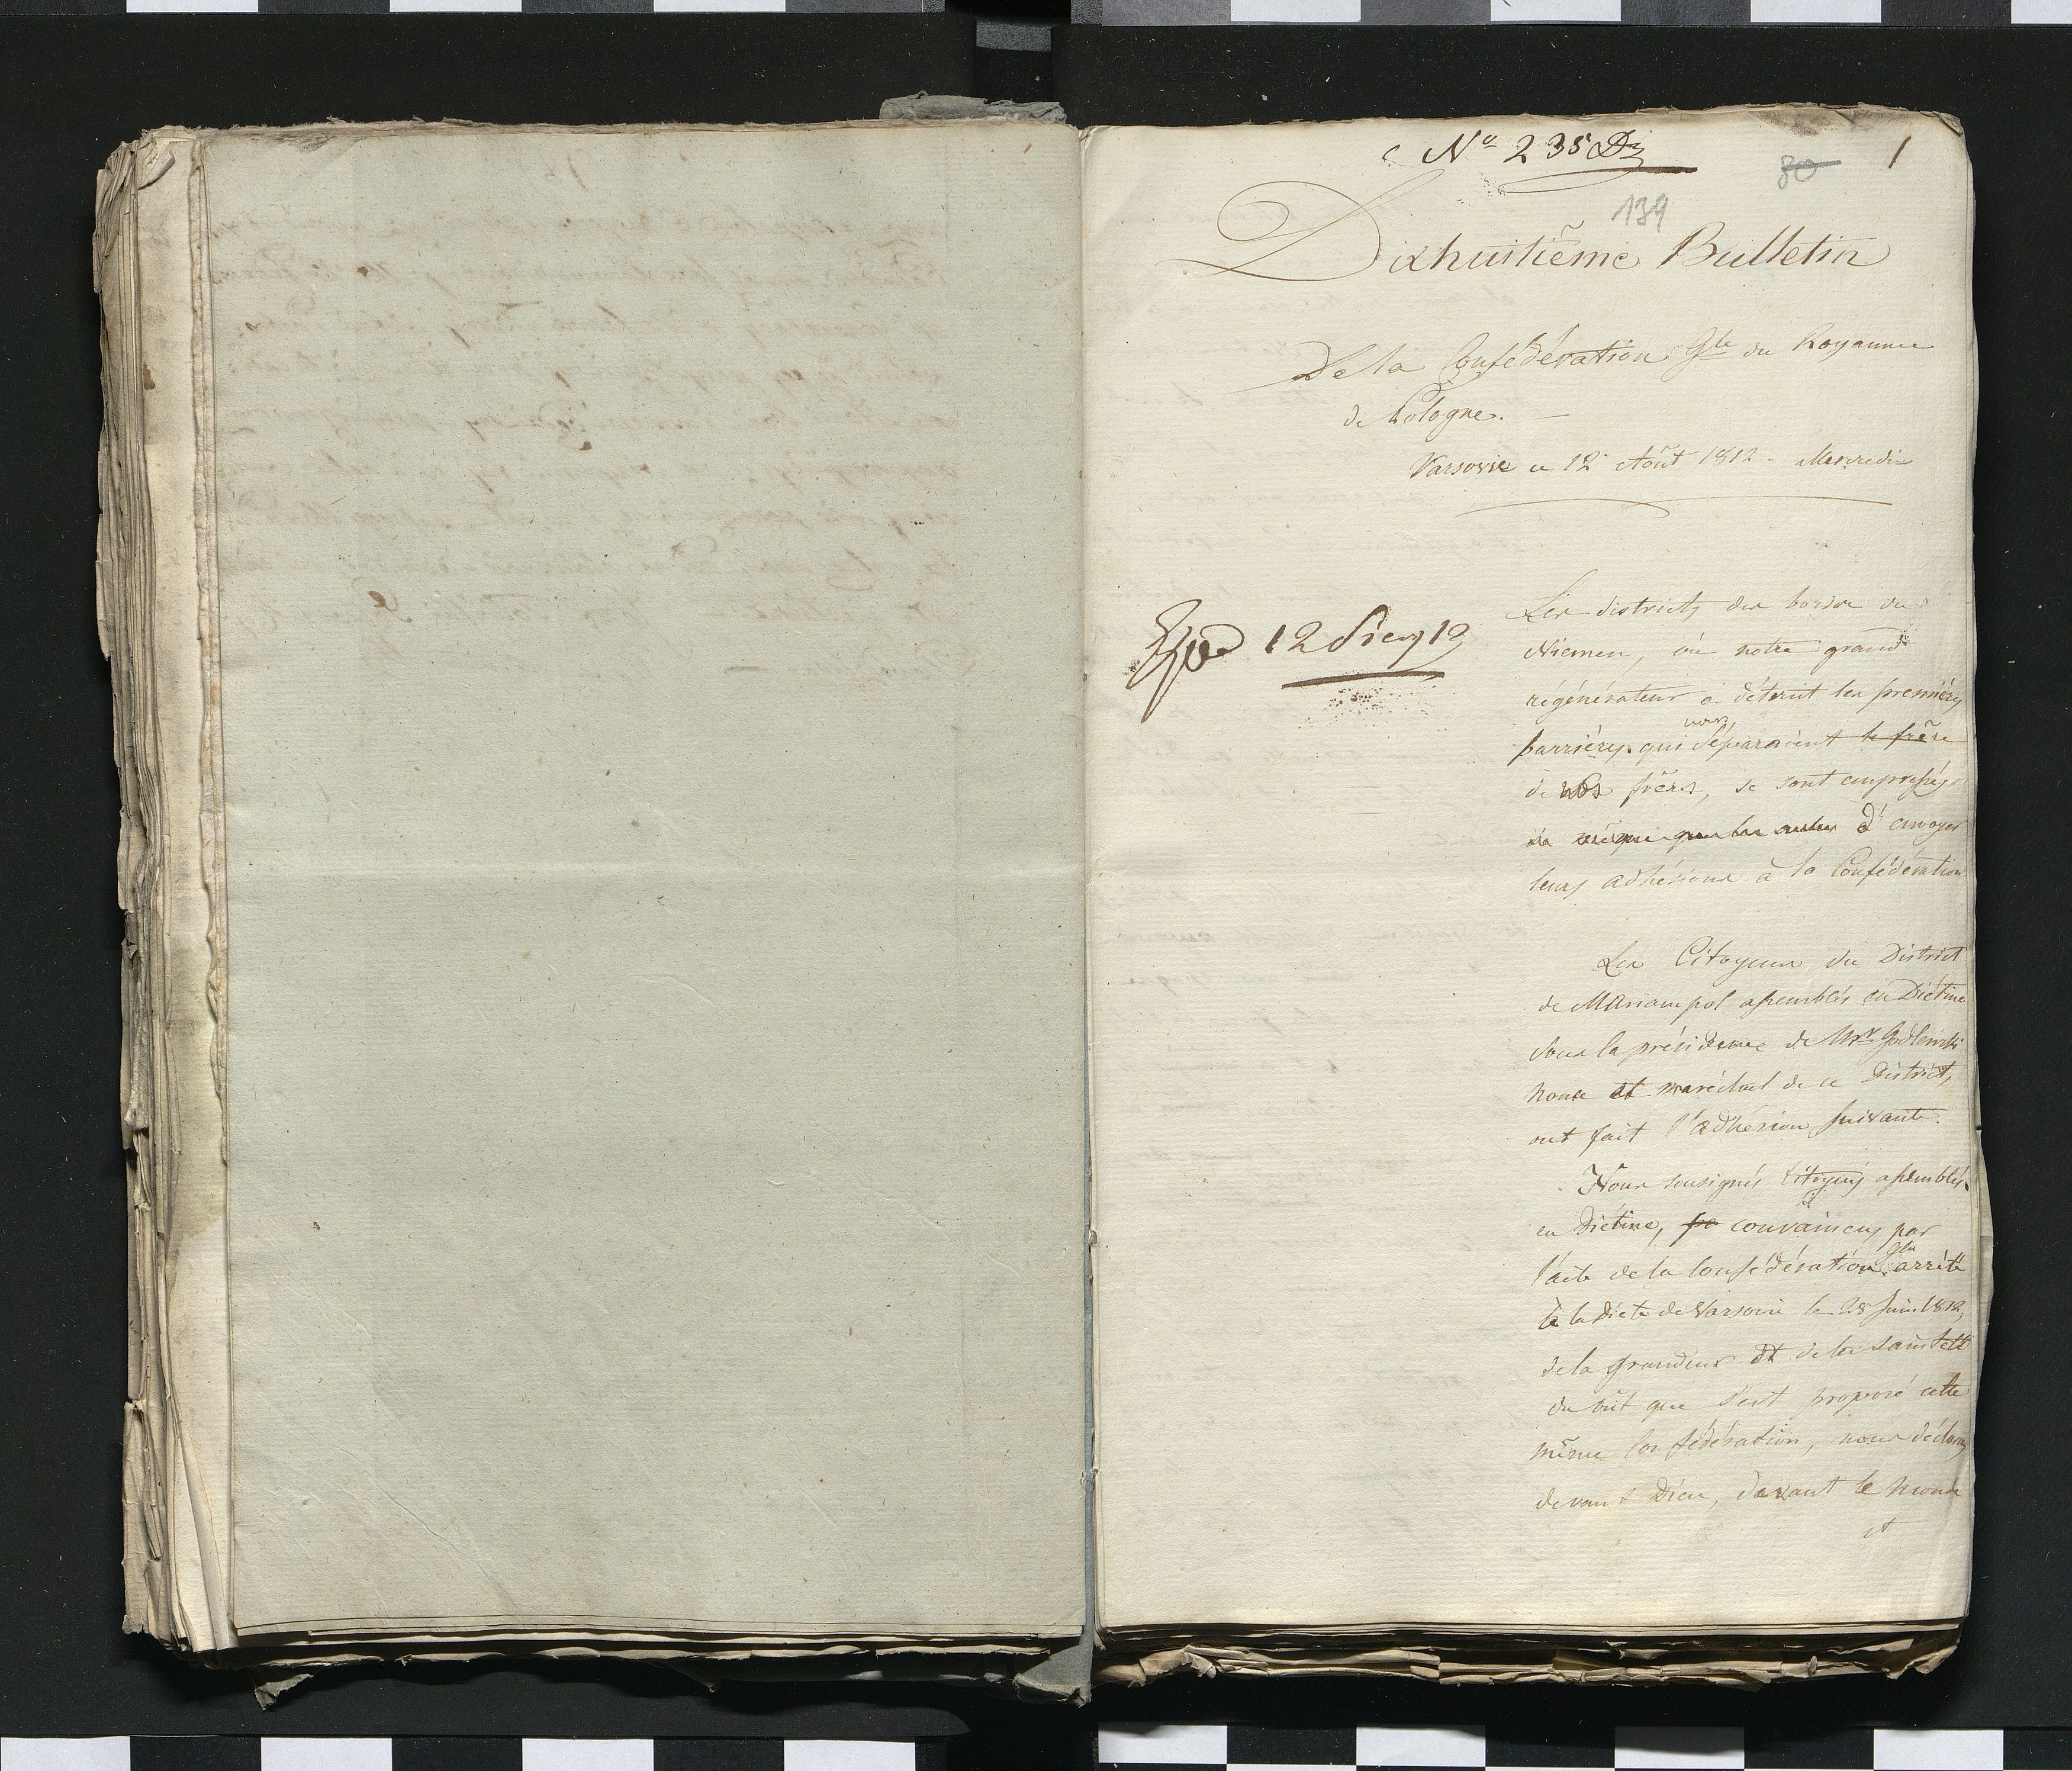 Nº 235 Dz
80 1
139
Dixhuitième Bulletin
De la Confédération Gle du Royaume
de Pologne. —
Varsovie ce 12 Août 1812 - Mercredi
Les districts des bords du
12 Sierp 12
Niemen, où notre grand
régénérateur a détruit les premières
nous
barrières qui séparaient le frère
de nos frères, se sont empressés
de même que les autres d'envoyer
leurs adhésions à la Confédération
Les Citoyens du District
de Mariampol assemblés en Diétine
sous la présidence de Mr Godlewski
nonce et maréchal de ce District,
ont fait l'adhésion suivante.
Nous sousignés Citoyens assemblés
en Diétine, convaincus par
Gle
l'acte de la Confédération arrêté
à la Diète de Varsovie le 28 Juin 1812,
de la grandeur et de la sainteté
du bût que s'est proposé cette
même Confédération, nous déclarons
devant Dieu, devant le monde
et